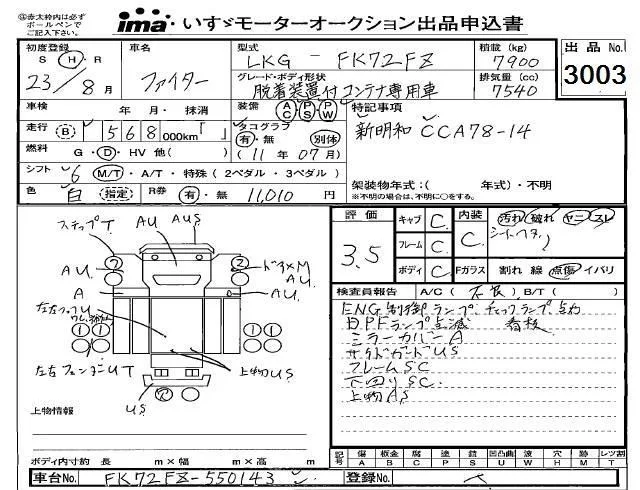 ㊟赤太枠内は必ず
ボールペンで
ご記入下さい。
ima いすゞモーターオークション出品申込書
初度登録 S H R 23/8月
車名 ファイター
型式 LKG - FK72FZ
積載 (kg) 7900
出品 No. 3003
グレード・ボディ形状 脱着装置付コンテナ専用車
排気量 (cc) 7540
車検 年 月・抹消
装備 AC PS PW
特記事項
走行 (B) 568 000km「 」
タコグラフ 有・無 別体
新明和 CCA78-14
燃料 G・D・HV 他( )
(11年07月)
シフト 6 M/T・A/T・特殊(2ペダル・3ペダル)
色 白 (指定) R券 有・無 11,010円
架装物年式:( 年式)・不明
※不明の場合は、不明に○をする。
評価 3.5
キャブ C
フレーム C
ボディ C
内装 C
汚れ 破れ ヤニ スレ
シートヘタリ
Fガラス C 割れ 線 点傷 イバリ
ステップT
AU AUS
AU ドアスM
AU AU
A
左右フェンダーUT
上物US
US
検査員報告 A/C(不良)B/T( )
ENG制御ランプ チェックランプ点灯
DPFランプ点滅 看板
ミラーカバーA
サイドガードUS
フレームSC
下回りSC
上物AS
上物情報
ボディ内寸約 長 m×幅 m×高 m
記号 傷A 板金B 腐C 塗P 錆S 凹凸曲U 波W 穴H 跡M レツ割T
車台No. FK72FZ-550143
登録No.